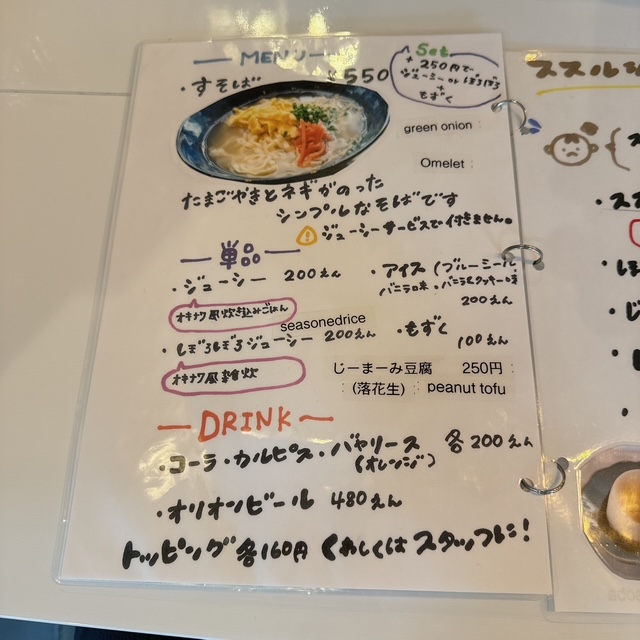 MENU
Set
+250円で
ジューシー or ぼろぼろ
+
もずく
・すそば ¥550
green onion
Omelet
たまごやきとネギがのった
シンプルなそばです
ジューシーサービスで付きません。
単品
・ジューシー 200えん
オキナワ風炊き込みごはん
seasonedrice
・アイス (ブルーシール
バニラ味・バニラ&クッキー味
200えん
・ぼろぼろジューシー 200えん
オキナワ風雑炊
・もずく
100えん
じーまーみ豆腐 250円
(落花生) peanut tofu
DRINK
・コーラ・カルピス・バヤリース 各200えん
(オレンジ)
・オリオンビール 480えん
トッピング各160円 くわしくはスタッフに!
ススル